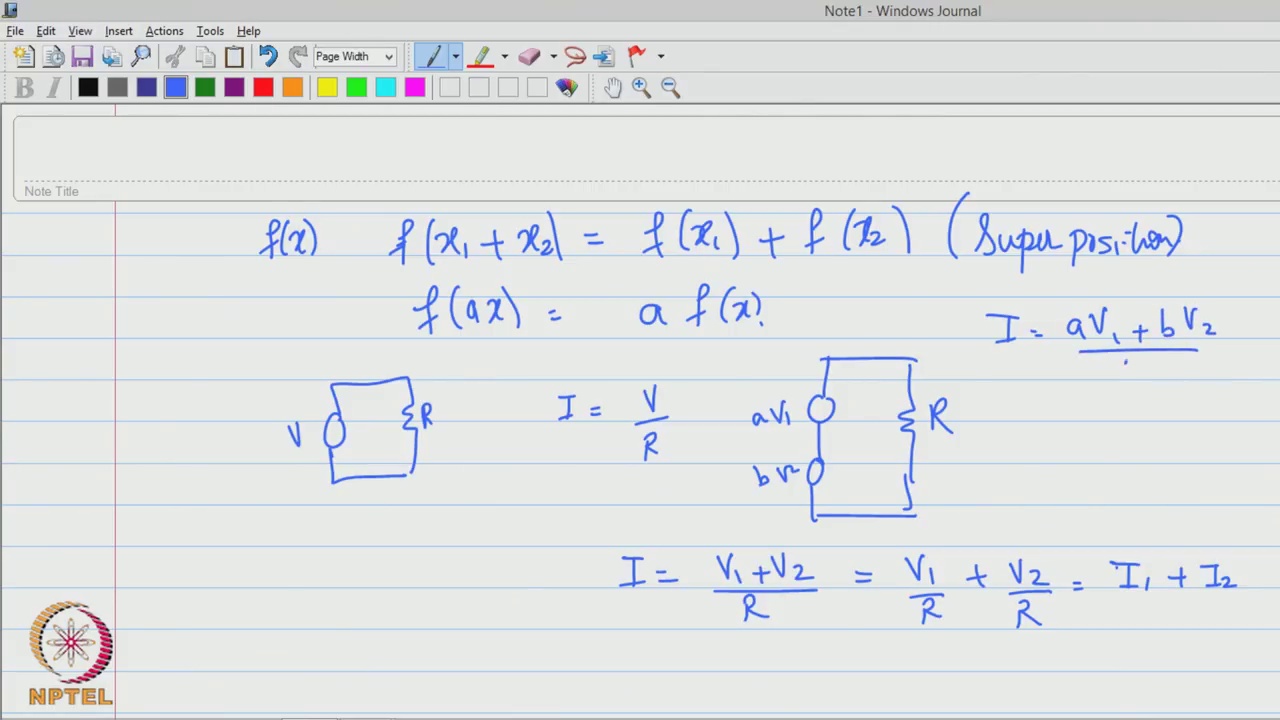 Note1 - Windows Journal
File Edit View Insert Actions Tools Help
Page Width
B I
Note Title
f(x) f(x₁ + x₂) = f(x₁) + f(x₂) (Superposition)
f(ax) = a f(x).
I = aV₁ + bV₂
V R I = V/R aV₁ R
bV²
I = V₁ + V₂/R = V₁/R + V₂/R = I₁ + I₂
NPTEL